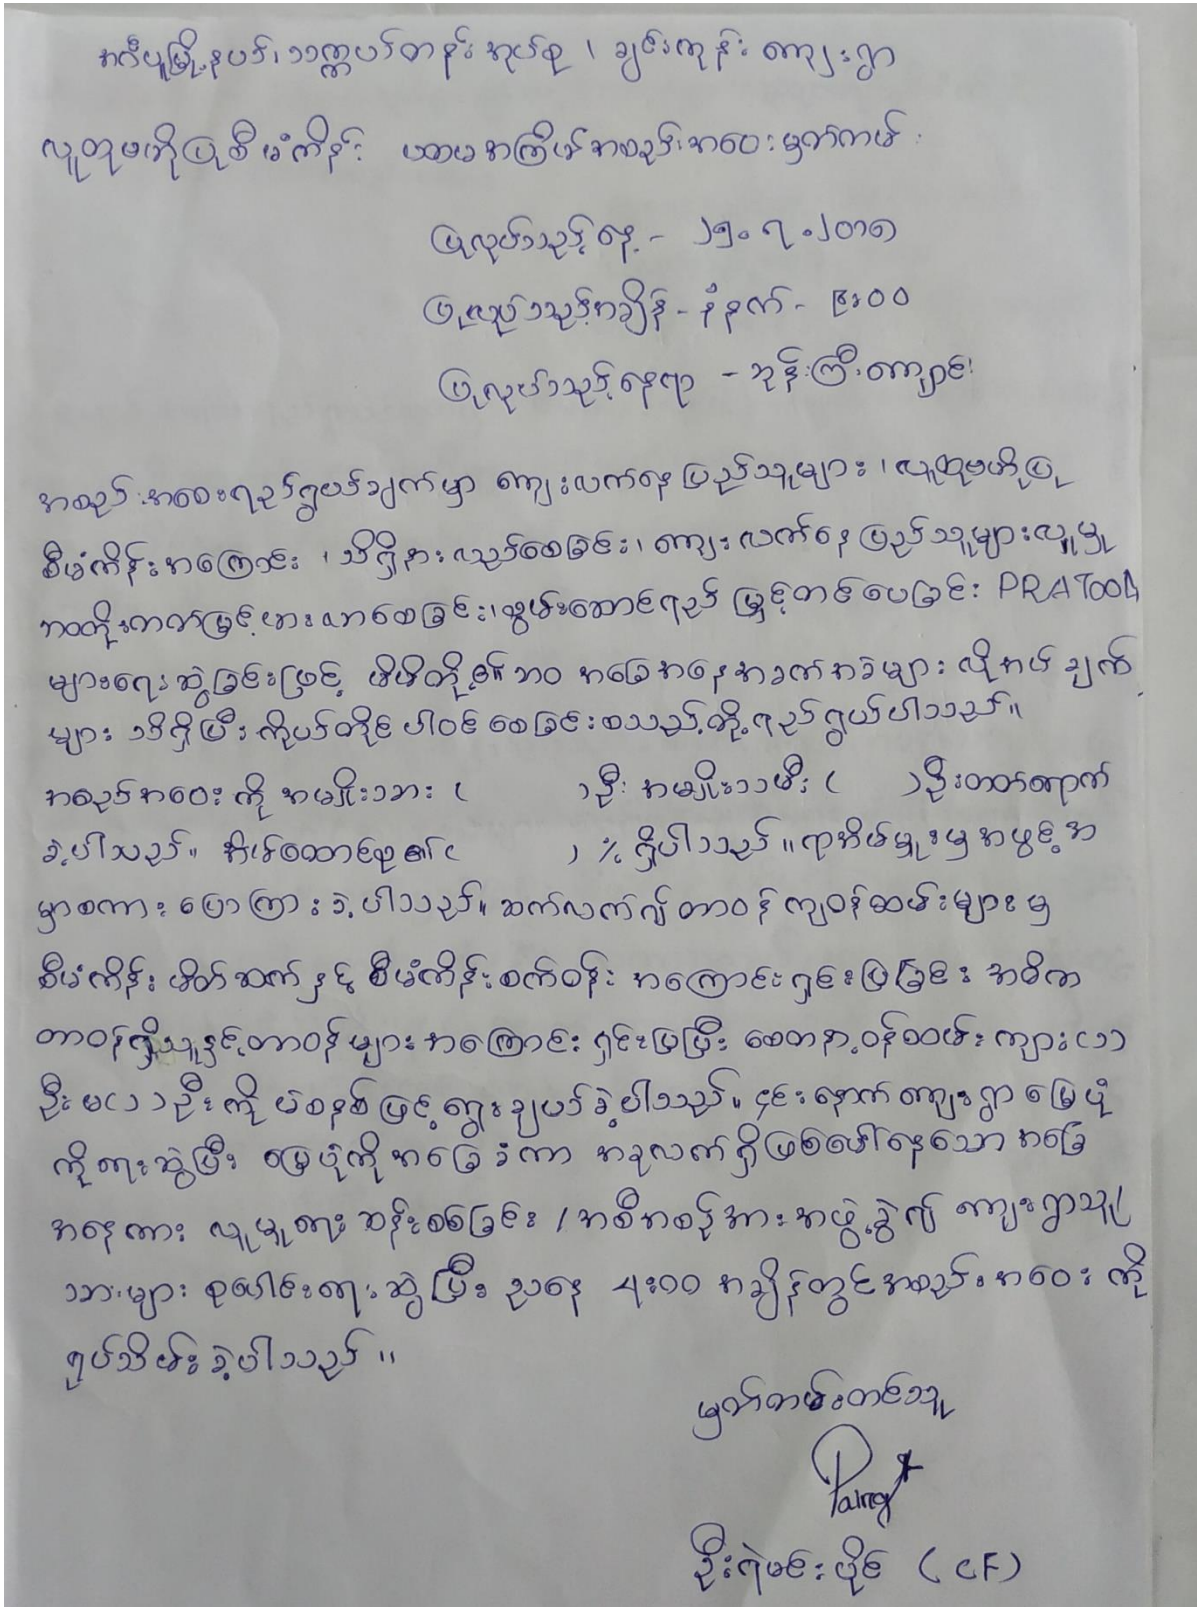 အင်္ဂပူမြို့နယ်၊ သက္ကယ်တန်းအုပ်စု၊ ချင်းကုန်းကျေးရွာ
လူထုဗဟိုပြုစီမံကိန်း ပထမအကြိမ်အစည်းအဝေးမှတ်တမ်း
ပြုလုပ်သည့်နေ့ - ၂၅.၇.၂၀၁၈
ပြုလုပ်သည့်အချိန် - နံနက် - ၉:၀၀
ပြုလုပ်သည့်နေရာ - ဘုန်းကြီးကျောင်း
အစည်းအဝေးရည်ရွယ်ချက်မှာ ကျေးလက်နေပြည်သူများ၊ လူထုဗဟိုပြု
စီမံကိန်းအကြောင်း၊ သိရှိနားလည်စေခြင်း၊ ကျေးလက်နေပြည်သူများလူမှု
ဘဝတိုးတက်မြင့်မားလာစေခြင်း၊ စွမ်းဆောင်ရည် မြှင့်တင်ပေးခြင်း PRA Tools
များရေးဆွဲခြင်းဖြင့် မိမိတို့၏ဘဝ အခြေအနေအခက်အခဲများ လိုအပ်ချက်
များ သိရှိပြီး ကိုယ်တိုင်ပါဝင်စေခြင်းစသည်တို့ ရည်ရွယ်ပါသည်။
အစည်းအဝေးကို အမျိုးသား ( ) ဦး အမျိုးသမီး ( ) ဦးတက်ရောက်
ခဲ့ပါသည်။ အိမ်ထောင်စု၏ ( ) % ရှိပါသည်။ ရာအိမ်မှူးမှ အဖွင့်အ
မှာစကား ပြောကြားခဲ့ပါသည်။ ဆက်လက်၍ တာဝန်ကျဝန်ထမ်းများမှ
စီမံကိန်း မိတ်ဆက်နှင့် စီမံကိန်းစက်ဝန်း အကြောင်းရှင်းပြခြင်း အဓိက
တာဝန်ရှိသူနှင့်တာဝန်များအကြောင်း ရှင်းပြပြီး စေတနာ့ဝန်ထမ်း ကျား(၁)
ဦး မ(၁)ဦးကို မဲစနစ်ဖြင့် ရွေးချယ်ခဲ့ပါသည်။ ၎င်းနောက် ကျေးရွာမြေပုံ
ကိုရေးဆွဲပြီး မြေပုံကိုအခြေခံကာ အခုလက်ရှိဖြစ်ပေါ်နေသော အခြေ
အနေအား လူမှုရေးဆန်းစစ်ခြင်း၊ အစီအစဉ်အား အဖွဲ့ခွဲ၍ ကျေးရွာသူ/
သားများ စုပေါင်းရေးဆွဲပြီး ညနေ ၄:၀၀ အချိန်တွင်အစည်းအဝေးကို
ရုပ်သိမ်းခဲ့ပါသည်။
မှတ်တမ်းတင်သူ
Paing
ဦးရဲမင်းပိုင် (CF)